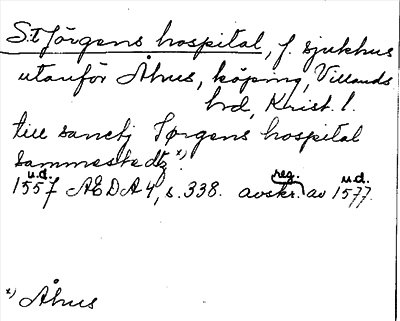 S:t Jörgens hospital, f. sjukhus
utanför Åhus, köping, Villands
hd, Krist. l.
till sanctj Jørgens hospital
sammestedtz x).
u.d. reg. u.d.
1557 ÆDA 4, s. 338. avskr. av 1577.
x) Åhus